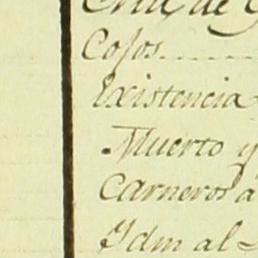 Cruz de
Cojos.....
Existencia
Muerto y
Carneros a
Ydm al